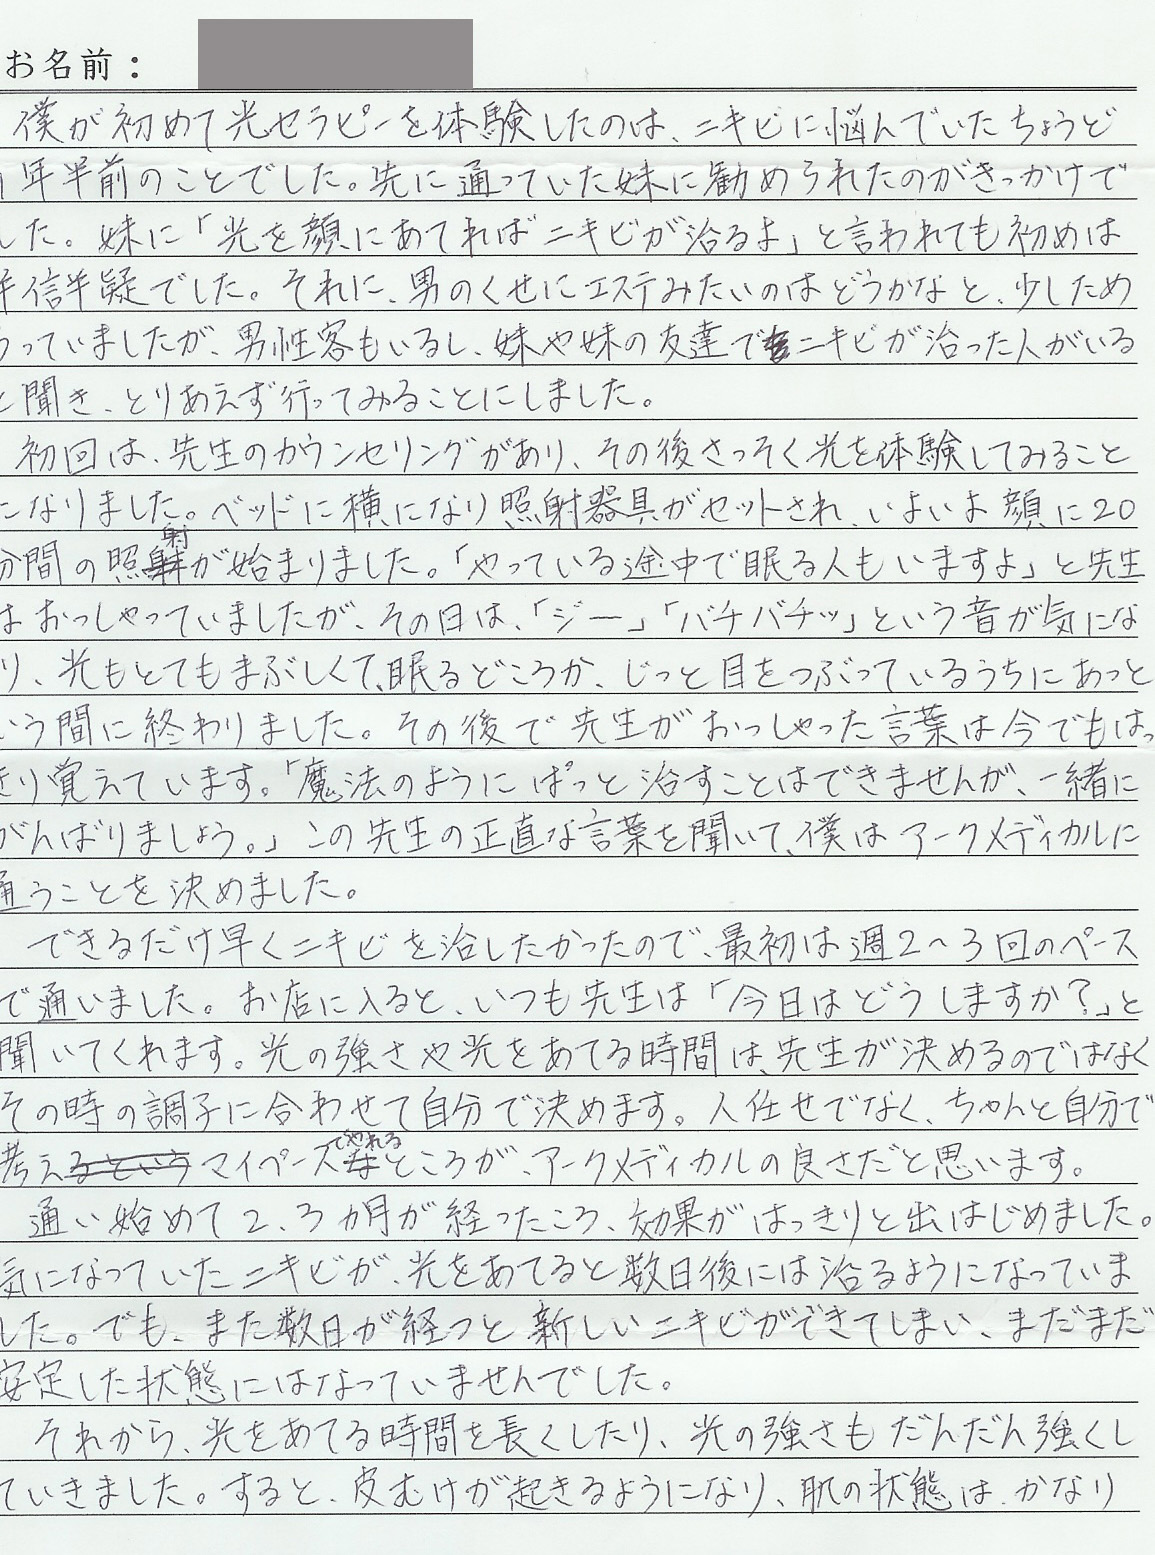 お名前：
僕が初めて光セラピーを体験したのは、ニキビに悩んでいたちょうど
1年半前のことでした。先に通っていた妹に勧められたのがきっかけで
した。妹に「光を顔にあてればニキビが治るよ」と言われても初めは
半信半疑でした。それに、男のくせにエステみたいのはどうかなと、少しため
らっていましたが、男性客もいるし、妹や妹の友達でニキビが治った人がいる
と聞き、とりあえず行ってみることにしました。
初回は、先生のカウンセリングがあり、その後さっそく光を体験してみること
になりました。ベッドに横になり照射器具がセットされ、いよいよ顔に20
分間の照射が始まりました。「やっている途中で眠る人もいますよ」と先生
はおっしゃっていましたが、その日は、「ジー」「バチバチッ」という音が気にな
り、光もとてもまぶしくて、眠るどころか、じっと目をつぶっているうちにあっと
いう間に終わりました。その後で先生がおっしゃった言葉は今でもはっ
きり覚えています。「魔法のようにぱっと治すことはできませんが、一緒に
がんばりましょう。」この先生の正直な言葉を聞いて、僕はアークメディカルに
通うことを決めました。
できるだけ早くニキビを治したかったので、最初は週2～3回のペース
で通いました。お店に入ると、いつも先生は「今日はどうしますか？」と
聞いてくれます。光の強さや光をあてる時間は、先生が決めるのではなく
その時の調子に合わせて自分で決めます。人任せでなく、ちゃんと自分で
考えマイペースでやれるところが、アークメディカルの良さだと思います。
通い始めて2、3カ月が経ったころ、効果がはっきりと出はじめました。
気になっていたニキビが、光をあてると数日後には治るようになっていま
した。でも、また数日が経つと新しいニキビができてしまい、まだまだ
安定した状態にはなっていませんでした。
それから、光をあてる時間を長くしたり、光の強さもだんだん強くし
ていきました。すると、皮むけが起きるようになり、肌の状態は、かなり